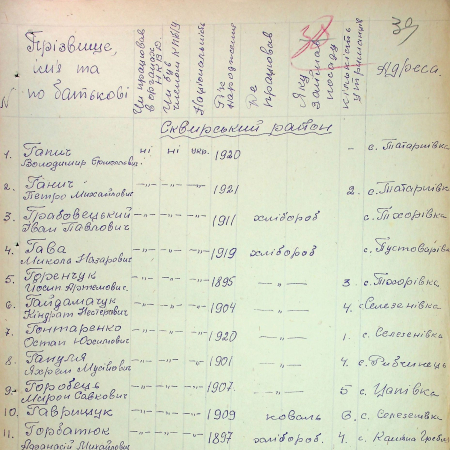 39
Прізвище, ім'я та по батькові
Чи працював в органах НКВС
Чи був членом КП(б)У
Національність
Рік народження
Де працював
Яку займав посаду
Кількість утриманців
Адреса
N
Сквирський район
1. Ганич ні ні укр. 1920 - с. Татарнівка
Володимир
2. Ганич -"- -"- -"- 1921 2. с. Татарнівка
Петро Михайлович
3. Грабовецький -"- -"- -"- 1911 хлібороб с. Тхорівка
Іван Павлович
4. Гава -"- -"- -"- 1919 хлібороб с. Пустоварівка
Микола Назарович
5. Горенчук -"- -"- -"- 1895 -"- 3. с. Тхорівка
Йосип Артемович
6. Гайдамачук -"- -"- -"- 1904 -"- 4. с. Селезенівка
Кіндрат Нестерович
7. Гонтаренко -"- -"- -"- 1920 -"- 1. с. Селезенівка
Остап Юхимович
8. Гануля -"- -"- -"- 1901 -"- 4. с. Рибчинець
Яхрем Мусійович
9. Горовець -"- -"- -"- 1907. -"- 5 с. Цапівка
Мирон Савкович
10. Гаврищук -"- -"- -"- 1909 коваль 6. с. Селезенівка
11. Горбатюк -"- -"- -"- 1897 хлібороб. 4. с. Кам'яна Гребля
Афанасій Михайлович